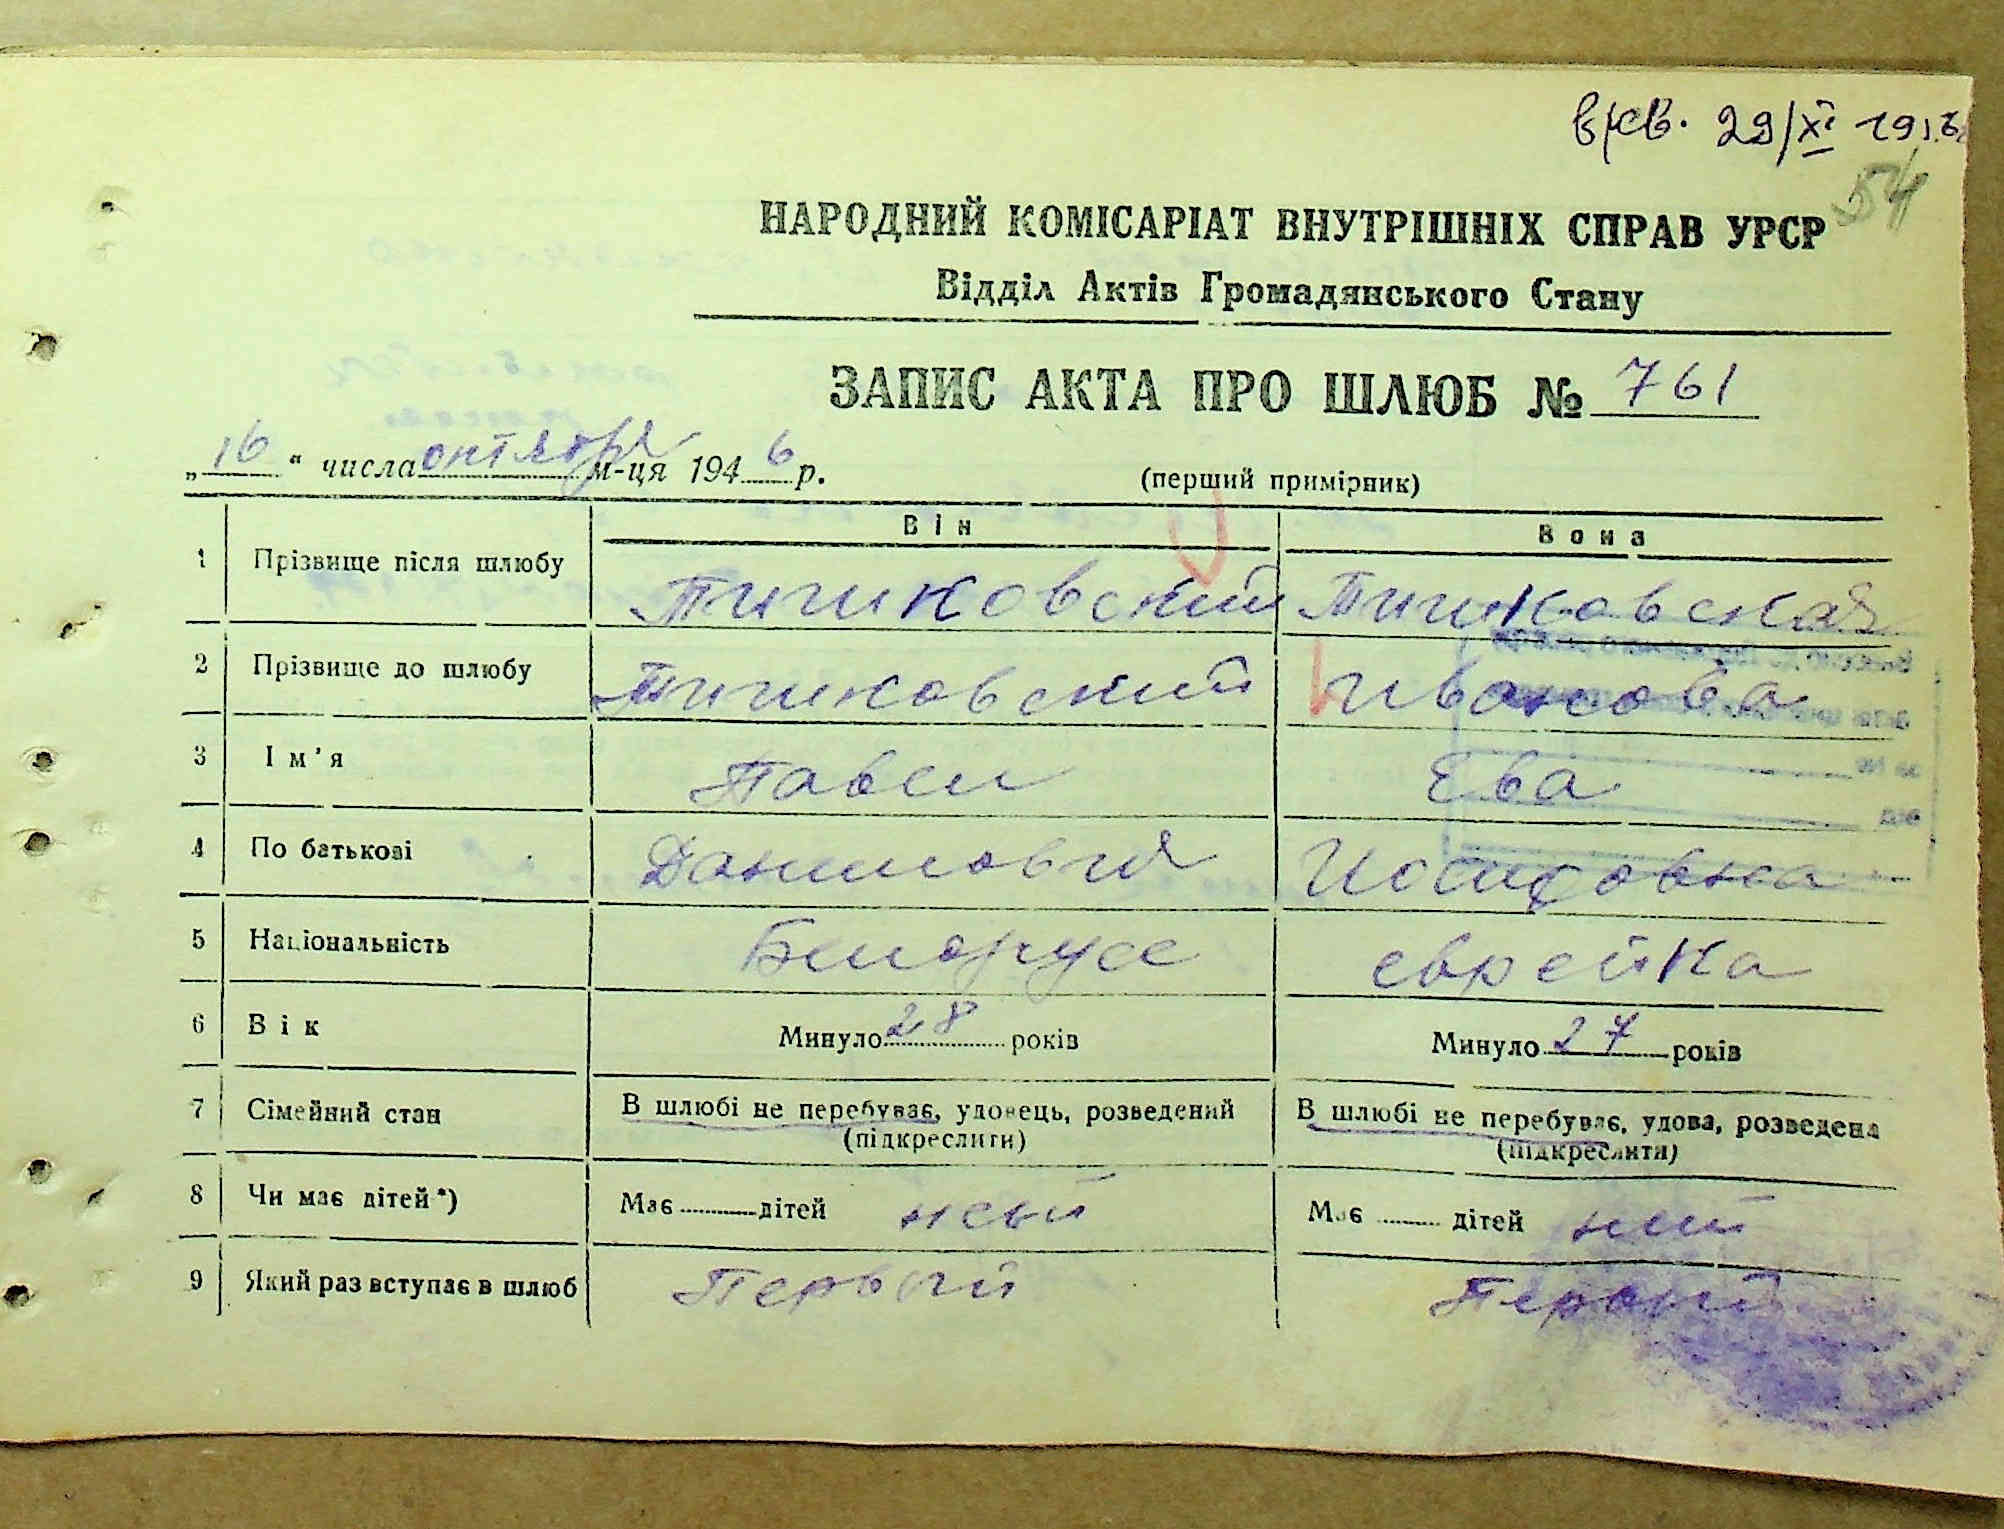 29/XI 19
54
НАРОДНИЙ КОМІСАРІАТ ВНУТРІШНІХ СПРАВ УРСР
Відділ Актів Громадянського Стану
ЗАПИС АКТА ПРО ШЛЮБ № 761
„16“ числа октября м-ця 1946 р. (перший примірник)
Він Вона
1 Прізвище після шлюбу Тишковский Тишковская
2 Прізвище до шлюбу Тишковский Иванова
3 Ім'я Павел Ева
4 По батькові Данилович Иосифовна
5 Національність Белорусс еврейка
6 Вік Минуло 28 років Минуло 27 років
7 Сімейний стан В шлюбі не перебуває, удовець, розведений В шлюбі не перебуває, удова, розведена
(підкреслити) (підкреслити)
8 Чи має дітей*) Має дітей Має дітей
9 Який раз вступає в шлюб Первый Первый